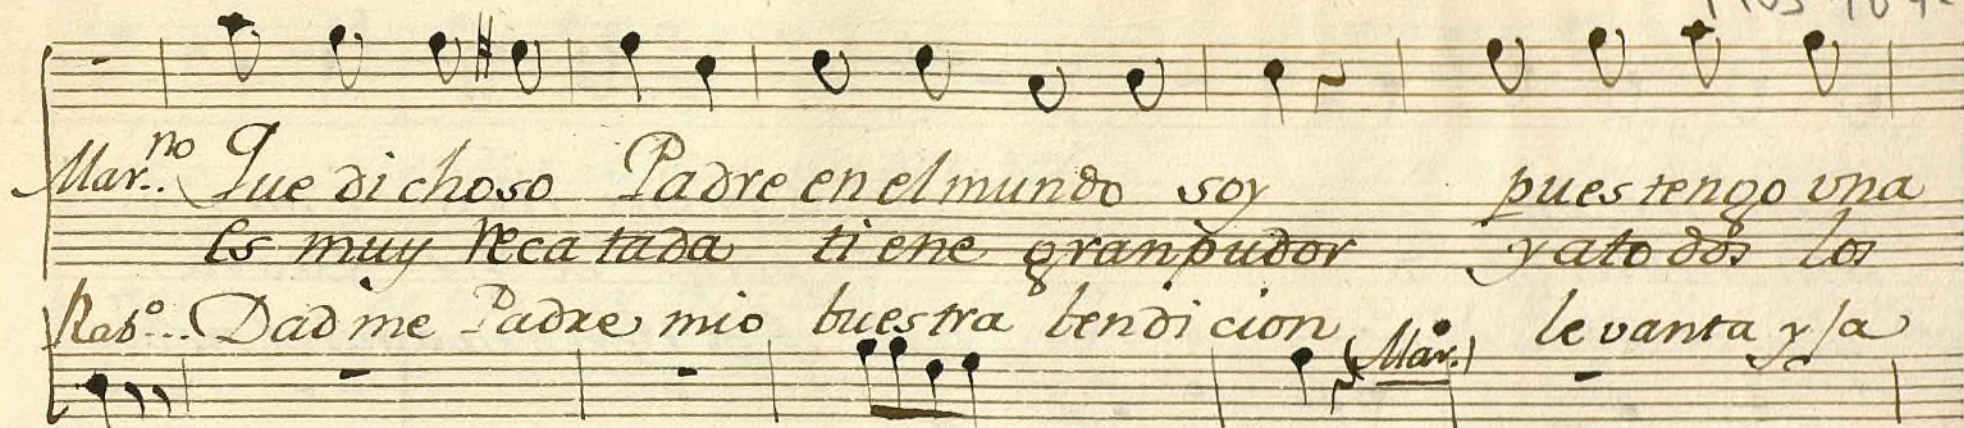 Mus 104-
Mar.no Que dichoso Padre en el mundo soy pues tengo vna
es muy recatada tiene gran pudor y a todos los
Rab.o Dadme Padre mio buestra bendicion (Mar.o) levanta y la